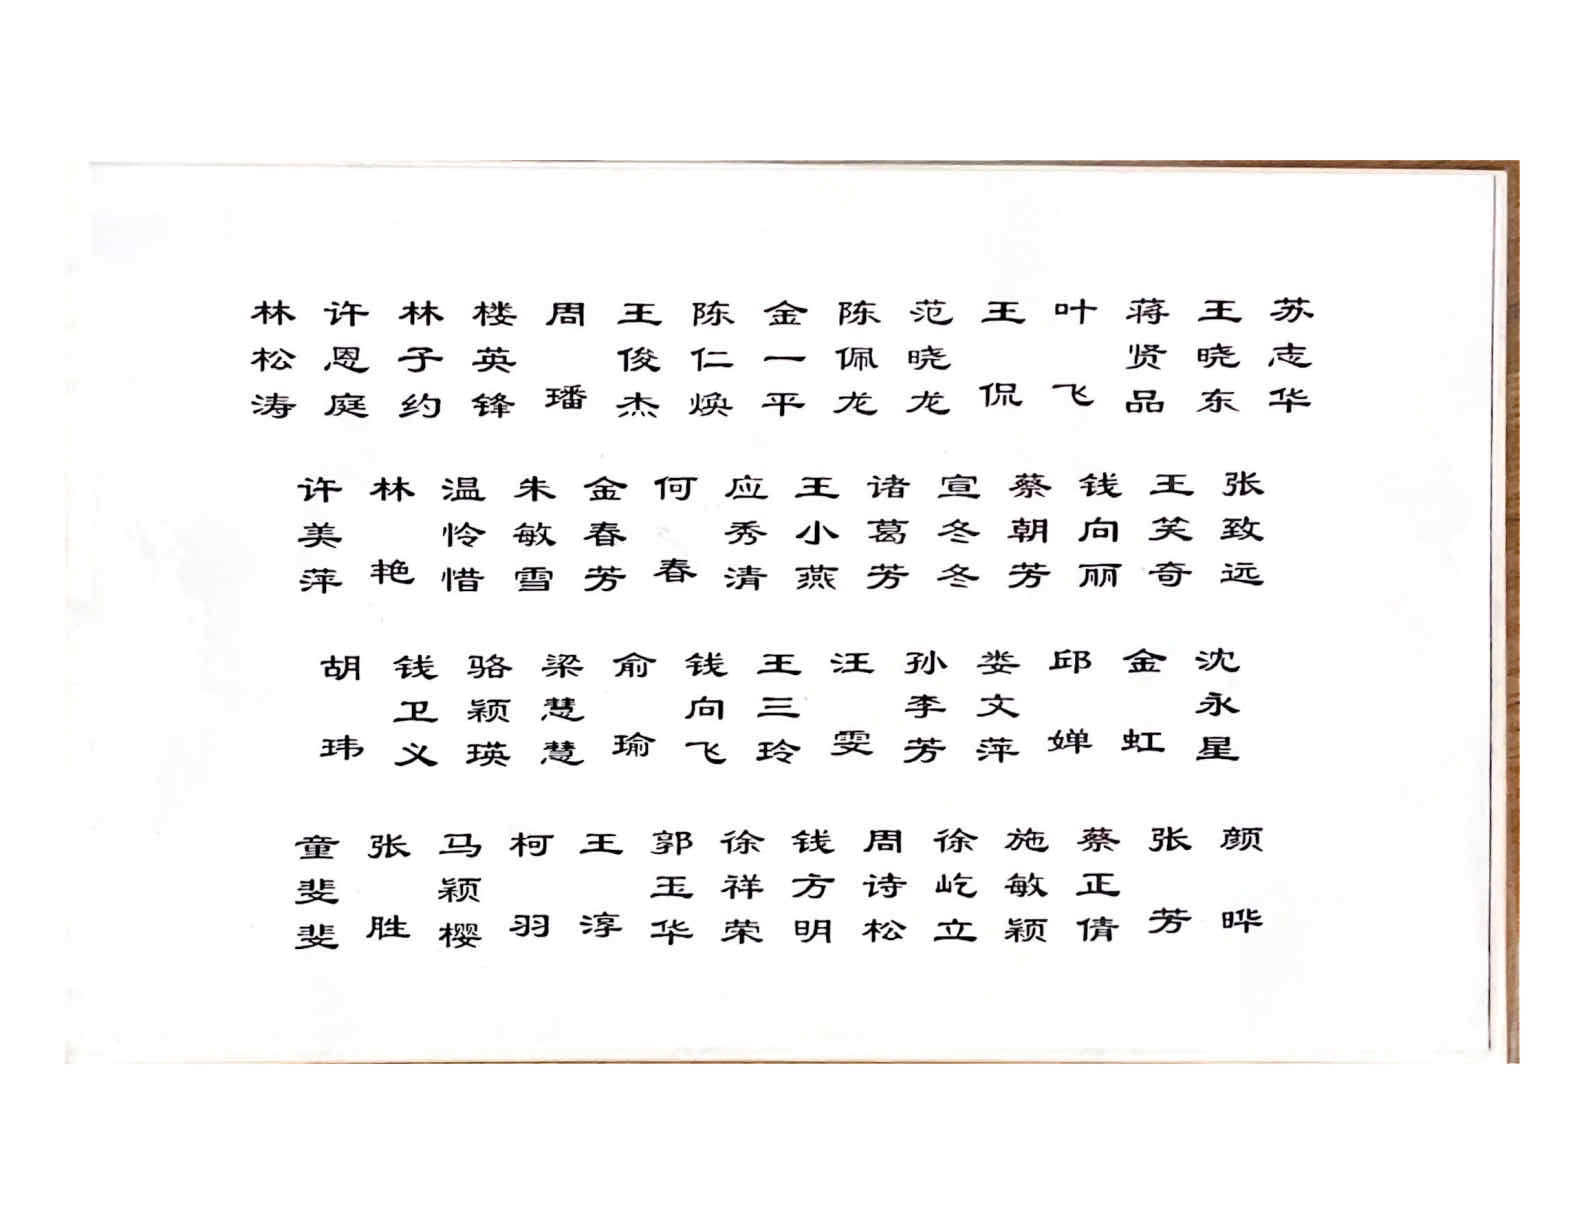 林松涛
许恩庭
林子约
楼英锋
周璠
王俊杰
陈仁焕
金一平
陈佩龙
范晓龙
王侃
叶飞
蒋贤品
王晓东
苏志华
许美萍
林艳
温怜惜
朱敏雪
金春芳
何春
应秀清
王小燕
诸葛芳
宣冬冬
蔡朝芳
钱向丽
王笑奇
张致远
胡玮
钱卫义
骆颖瑛
梁慧慧
俞瑜
钱向飞
王三玲
汪雯
孙李芳
娄文萍
邱婵
金虹
沈永星
童斐斐
张胜
马颖樱
柯羽
王淳
郭玉华
徐祥荣
钱方明
周诗松
徐屹立
施敏颖
蔡正倩
张芳
颜晔